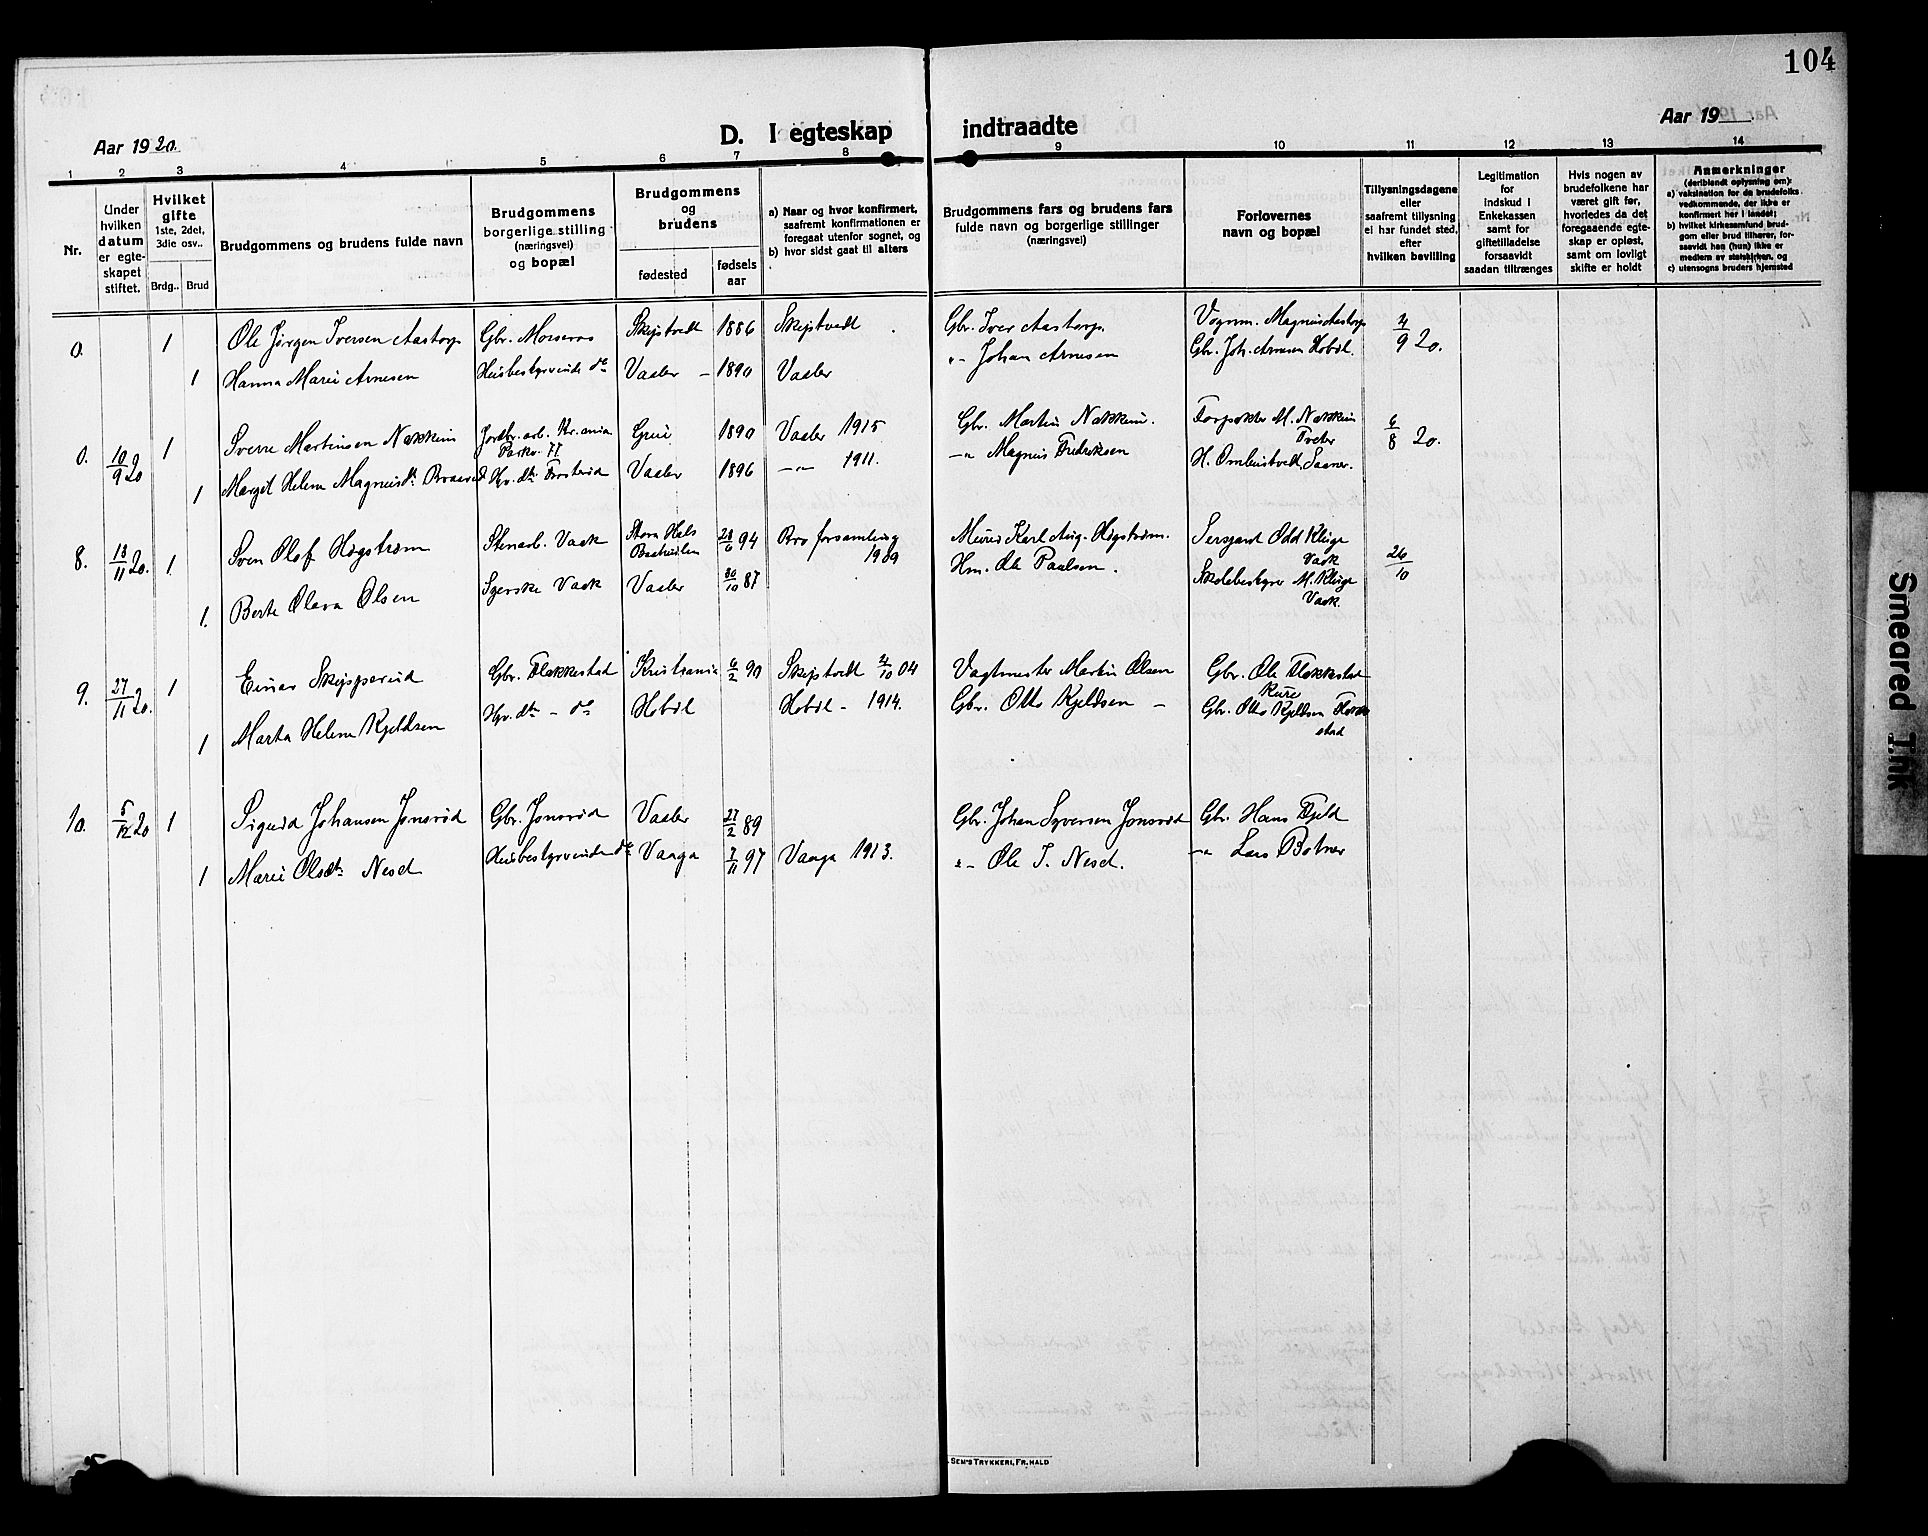 104
Aar 1920.
D. I egteskap indtraadte
Aar 19
1 2 3 4 5 6 7 8 9 10 11 12 13 14
Nr.
Under hvilken datum er egteskapet stiftet.
Hvilket gifte 1ste, 2det, 3die osv..
Brdg.. Brud
Brudgommens og brudens fulde navn
Brudgommens borgerlige stilling (næringsvei) og bopæl
Brudgommens og brudens
fødested
fødsels aar
a) Naar og hvor konfirmert, saafremt konfirmationen er foregaat utenfor sognet, og
b) hvor sidst gaat til alters
Brudgommens fars og brudens fars fulde navn og borgerlige stillinger (næringsvei)
Forlovernes navn og bopæl
Tillysningsdagene eller saafremt tillysning ei har fundet sted, efter hvilken bevilling
Legitimation for indskud i Enkekassen samt for giftetilladelse forsaavidt saadan tiltrænges
Hvis nogen av brudefolkene har været gift før, hvorledes da det foregaaende egteskap er opløst, samt om lovligt skifte er holdt
Anmerkninger (deriblandt oplysning om):
a) vaksination for de brudefolks vedkommende, der ikke er konfirmert her i landet;
b) hvilket kirkesamfund brudgom eller brud tilhører, forsaavidt han (hun) ikke er medlem av statskirken, og
c) utensogns bruders hjemsted
0. 1 Ole Jörgen Iversen Aastorp Gbr. Morseros Skjptvedt 1886 Skiptvedt Gbr. Iver Aastorp. Vognm. Magnus Aastorp 4/9 20.
1 Hanna Marie Arnesen Husbestyrerinde do Vaaler 1890 Vaaler " Johan Arnesen Gbr. Joh. Arnesen Hobøl.
0. 10/9 20 1 Sverre Martinsen Nakkim Jordbr.arb. Kr.ania Parkv. 77 Grue 1890 Vaaler 1915 Gbr. Martin Nakkim. Forpakter M. Nakkim Tveter 6/8 20.
1 Margit Helene Magnusdt. Braarud Gbr. dtr. Vaaler 1896 " 1911. " Magnus Fredriksen H. Saaner.
8. 13/11 20. 1. Sven Olof Högström Stenarb. Vaak 28/6 94 Bro forsamling 1909 Murer Karl Aug. Högström. Sersjant Odd Kluge Vaak 26/10
1. Berte Olava Olsen Syerske Vaak Vaaler 30/10 87 Hm. Ole Paulsen. Skolebestyrer M. Kluge Vaak.
9. 27/11 20. 1 Einar Skjpperud Gbr. Flakkestad Kristiania 6/2 90 Skiptvedt 2/10 04 Vagtmester Martin Olsen Gbr. Ole Flakkestad Kure
1 Marta Helene Kjeldsen Gbr. dtr. - do Hobøl Hobøl - 1914. Gbr. Otto Kjeldsen - Gbr. Otto Kjeldsen
10. 5/12 20 1 Sigurd Johansen Jonsrød Gbr. Jonsrød Vaaler 27/2 89 Gbr. Johan Syversen Jonsrød Gbr. Hans Fjeld
1 Marie Olsdtr. Nesed Husbestyrerinde do Vaaga 7/11 97 Vaaga 1913. " Ole T. Nesed. " Lars Botner
SEM'S TRYKKERI, FR.HALD
Smeared Ink